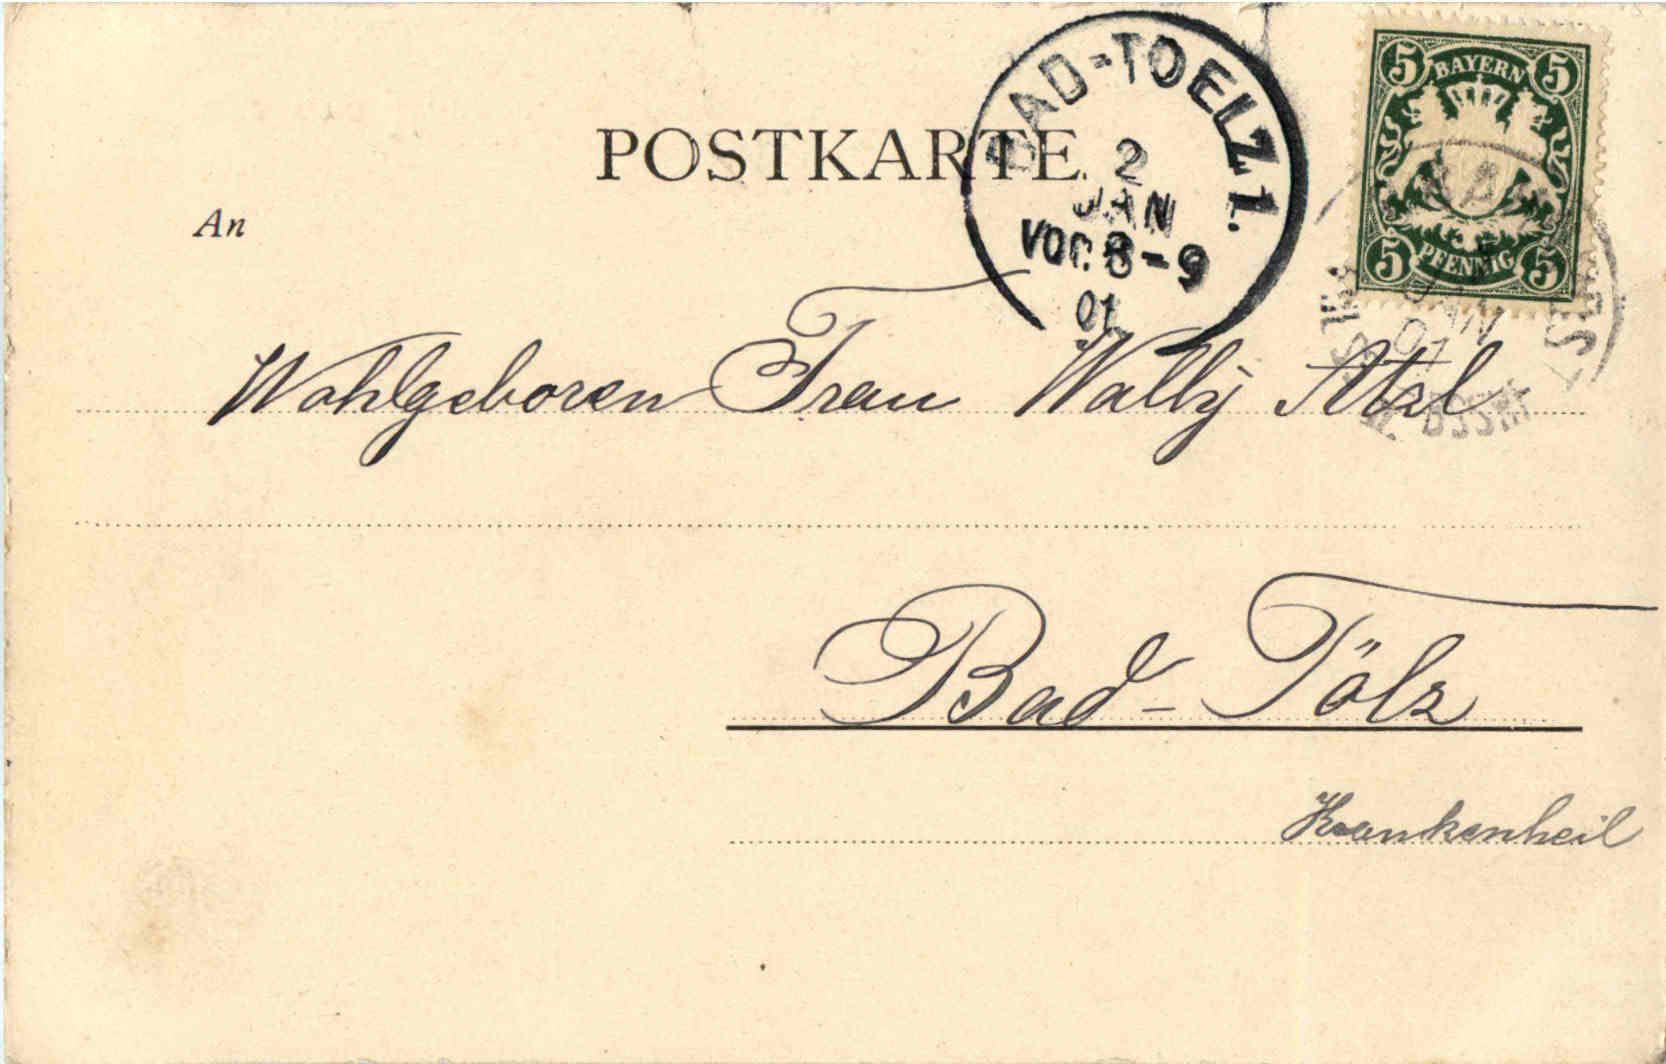 POSTKARTE.
BAD-TOELZ 1.
2
JAN
VOR. 8-9
01.
5 BAYERN 5
5 PFENNIG 5
An
Wohlgeboren Frau Wally Atzl
Bad-Tölz
Krankenheil